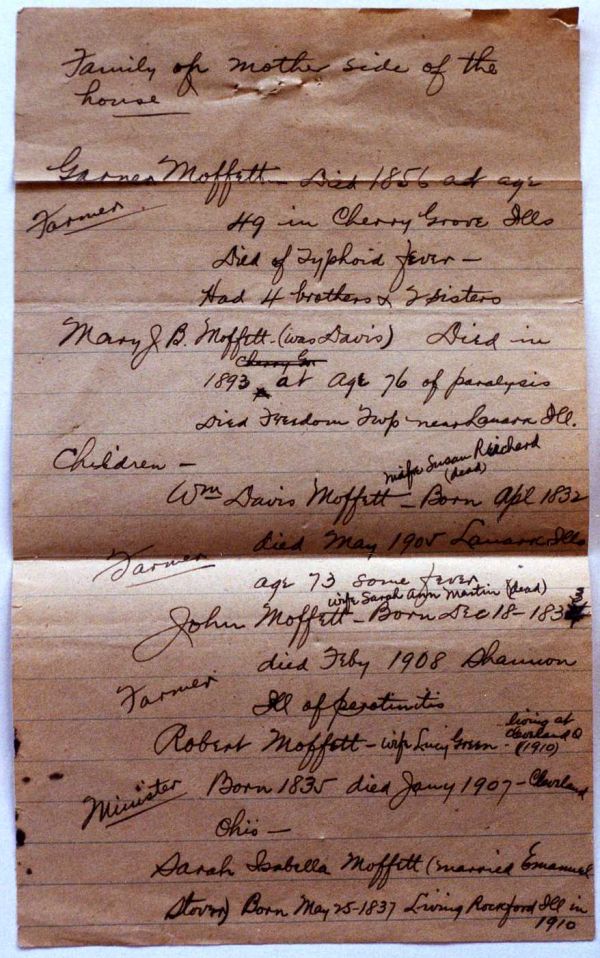 Family of mother side of the
house
Garner Moffett - Died 1856 at age
Farmer
49 in Cherry Grove Ills
Died of Typhoid fever -
Had 4 brothers & 2 sisters
Mary J B. Moffett - (was Davis) Died in
1893 at age 76 of paralysis
Died Freedom Twp near Lanark Ill.
Children -
wife Susan Reichard
(dead)
Wm Davis Moffett - Born Apl 1832
died May 1905 Lanark Ills
Farmer
age 73 some fever
wife Sarah Ann Martin (dead)
John Moffett - Born Dec 18 - 1833
died Feby 1908 Shannon
Farmer
Ill of peratinitis
Robert Moffett - wife Lucy Green - living at
Cleveland O
(1910)
Minister
Born 1835 died Jany 1907 - Cleveland
Ohio -
Sarah Isabella Moffett (married Emanuel
Stover) Born May 25 - 1837 Living Rockford Ill in
1910